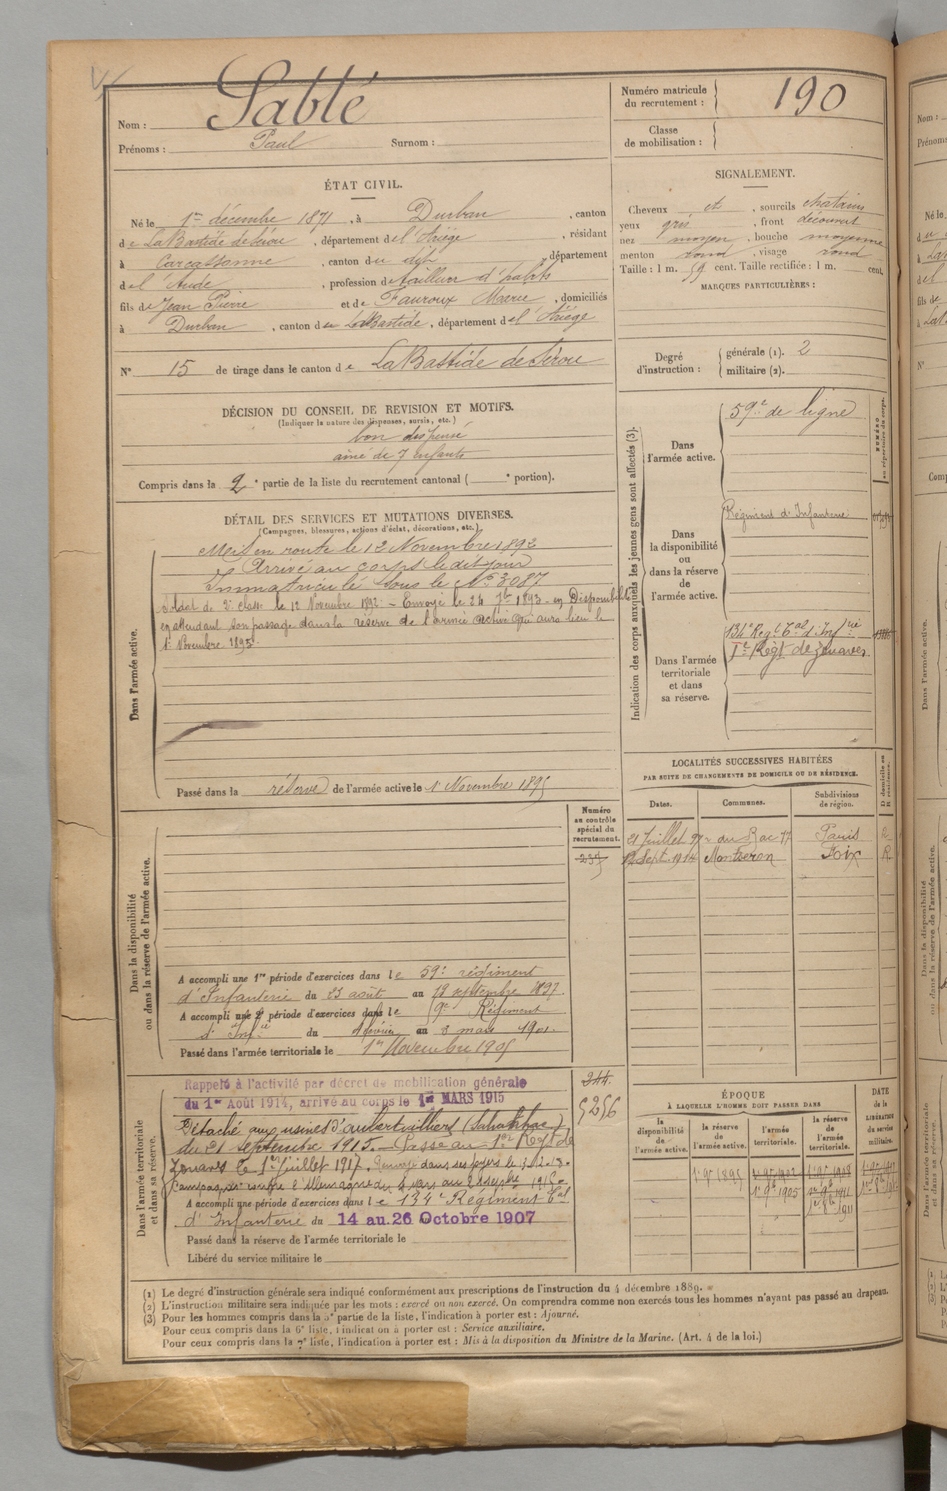 Sablé
Nom :
Prénoms : Paul Surnom :
Numéro matricule
du recrutement : 190
Classe
de mobilisation :
ÉTAT CIVIL.
Né le 1er décembre 1871, à Durban, canton
de La Bastide de Sérou, département de l'Ariège, résidant
à Carcassonne, canton du dit, département
de l'Aude, profession de tailleur d'habits
fils de Jean Pierre et de Fauroux Marie, domiciliés
à Durban, canton de LaBastide, département de l'Ariège
N° 15 de tirage dans le canton de La Bastide de Sérou
SIGNALEMENT.
Cheveux et, sourcils chatains
yeux gris, front découvert
nez moyen, bouche moyenne
menton rond, visage rond
Taille : 1 m. 59 cent. Taille rectifiée : 1 m. cent.
MARQUES PARTICULIÈRES :
Degré
d'instruction :
générale (1). 2
militaire (2).
DÉCISION DU CONSEIL DE REVISION ET MOTIFS.
(Indiquer la nature des dispenses, sursis, etc.)
bon dispensé
ainé de 7 enfants
Compris dans la 2e partie de la liste du recrutement cantonal ( e portion).
DÉTAIL DES SERVICES ET MUTATIONS DIVERSES.
(Campagnes, blessures, actions d'éclat, décorations, etc.)
Dans l'armée active.
Mis en route le 12 Novembre 1892
Arrivé au corps le dit jour
Immatriculé sous le N° 3087
Soldat de 2e classe le 12 Novembre 1892 - Envoyé le 24 7bre 1893 en Disponibilité
en attendant son passage dans la réserve de l'armée active qui aura lieu le
1er Novembre 1895.
Passé dans la réserve de l'armée active le 1er Novembre 1895
Indication des corps auxquels les jeunes gens sont affectés (3).
NUMÉRO
au répertoire du corps.
Dans
l'armée active.
59e de ligne
Dans
la disponibilité
ou
dans la réserve
de
l'armée active.
Régiment d'Infanterie
Dans l'armée
territoriale
et dans
sa réserve.
134e Regt Tal d'Infrie
1er Régt de Zouaves
LOCALITÉS SUCCESSIVES HABITÉES
PAR SUITE DE CHANGEMENTS DE DOMICILE OU DE RÉSIDENCE.
Dates. Communes. Subdivisions
de région.
D domicile ou
R résidence.
21 Juillet 97 r. du Bac 77 Paris R
12 Sept. 1914 Montseron Foix R
Dans la disponibilité
ou dans la réserve de l'armée active.
Numéro
au contrôle
spécial du
recrutement.
A accompli une 1re période d'exercices dans le 59e régiment
d'Infanterie du 23 août au 19 septembre 1897
A accompli une 2e période d'exercices dans le 9e Régiment
d'Infie du février au 3 mars 1901.
Passé dans l'armée territoriale le 1er Novembre 1905
Dans l'armée territoriale
et dans sa réserve.
Rappelé à l'activité par décret de mobilisation générale
du 1er Août 1914, arrivé au corps le 1er MARS 1915
Détaché aux usines d'aubervilliers
du 21 septembre 1915. - Passé au 1er Regt de
Zouaves le 1er juillet 1917.
A accompli une période d'exercices dans le 134e Régiment Tal
d'Infanterie du 14 au 26 Octobre 1907
Passé dans la réserve de l'armée territoriale le
Libéré du service militaire le
244.
5256
ÉPOQUE
À LAQUELLE L'HOMME DOIT PASSER DANS
la
disponibilité
de
l'armée active.
la réserve
de
l'armée active.
l'armée
territoriale.
la réserve
de
l'armée
territoriale.
DATE
de la
LIBÉRATION
du service
militaire.
1er 9bre 1895
1er 9bre 1905
1er 9bre 1911
(1) Le degré d'instruction générale sera indiqué conformément aux prescriptions de l'instruction du 4 décembre 1889.
(2) L'instruction militaire sera indiquée par les mots : exercé ou non exercé. On comprendra comme non exercés tous les hommes n'ayant pas passé au drapeau.
(3) Pour les hommes compris dans la 5e partie de la liste, l'indication à porter est : Ajourné.
Pour ceux compris dans la 6e liste, l'indication à porter est : Service auxiliaire.
Pour ceux compris dans la 7e liste, l'indication à porter est : Mis à la disposition du Ministre de la Marine. (Art. 4 de la loi.)